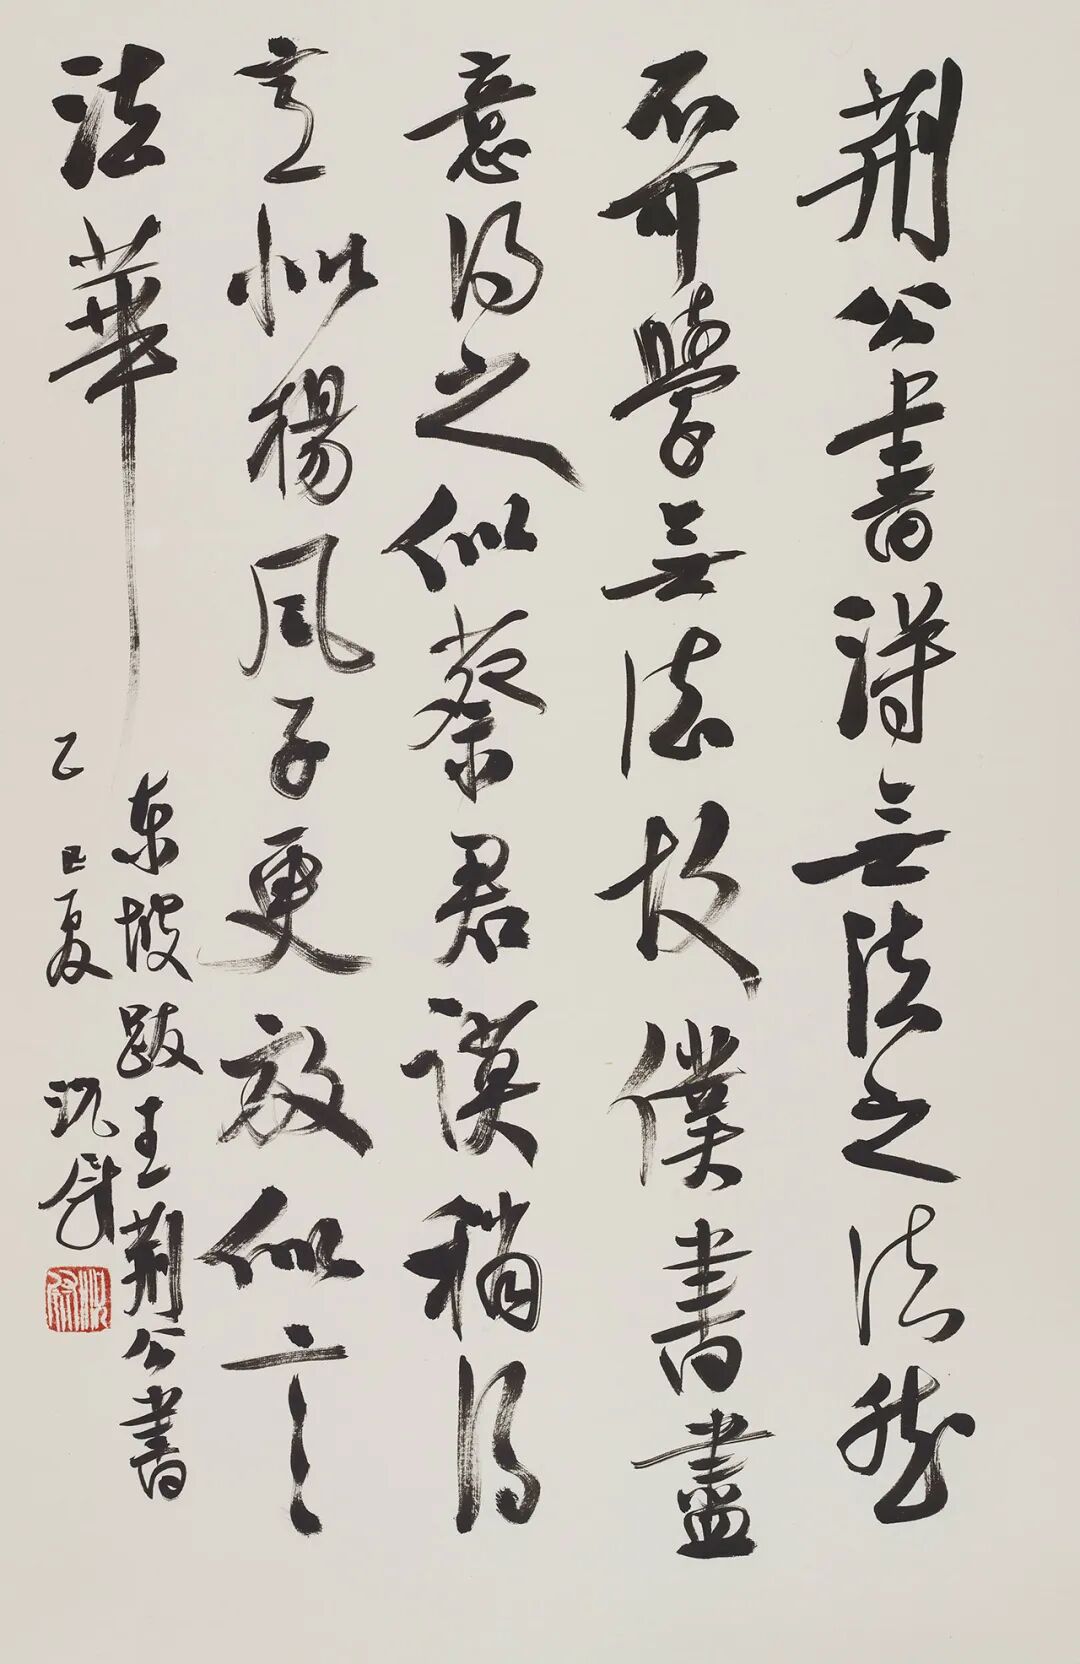 荆公書得無法之法然
不可學無法故僕書盡
意作之似蔡君謨稍得
意似楊風子更放似言
法華
東坡跋王荆公書
乙巳夏 沈鵬